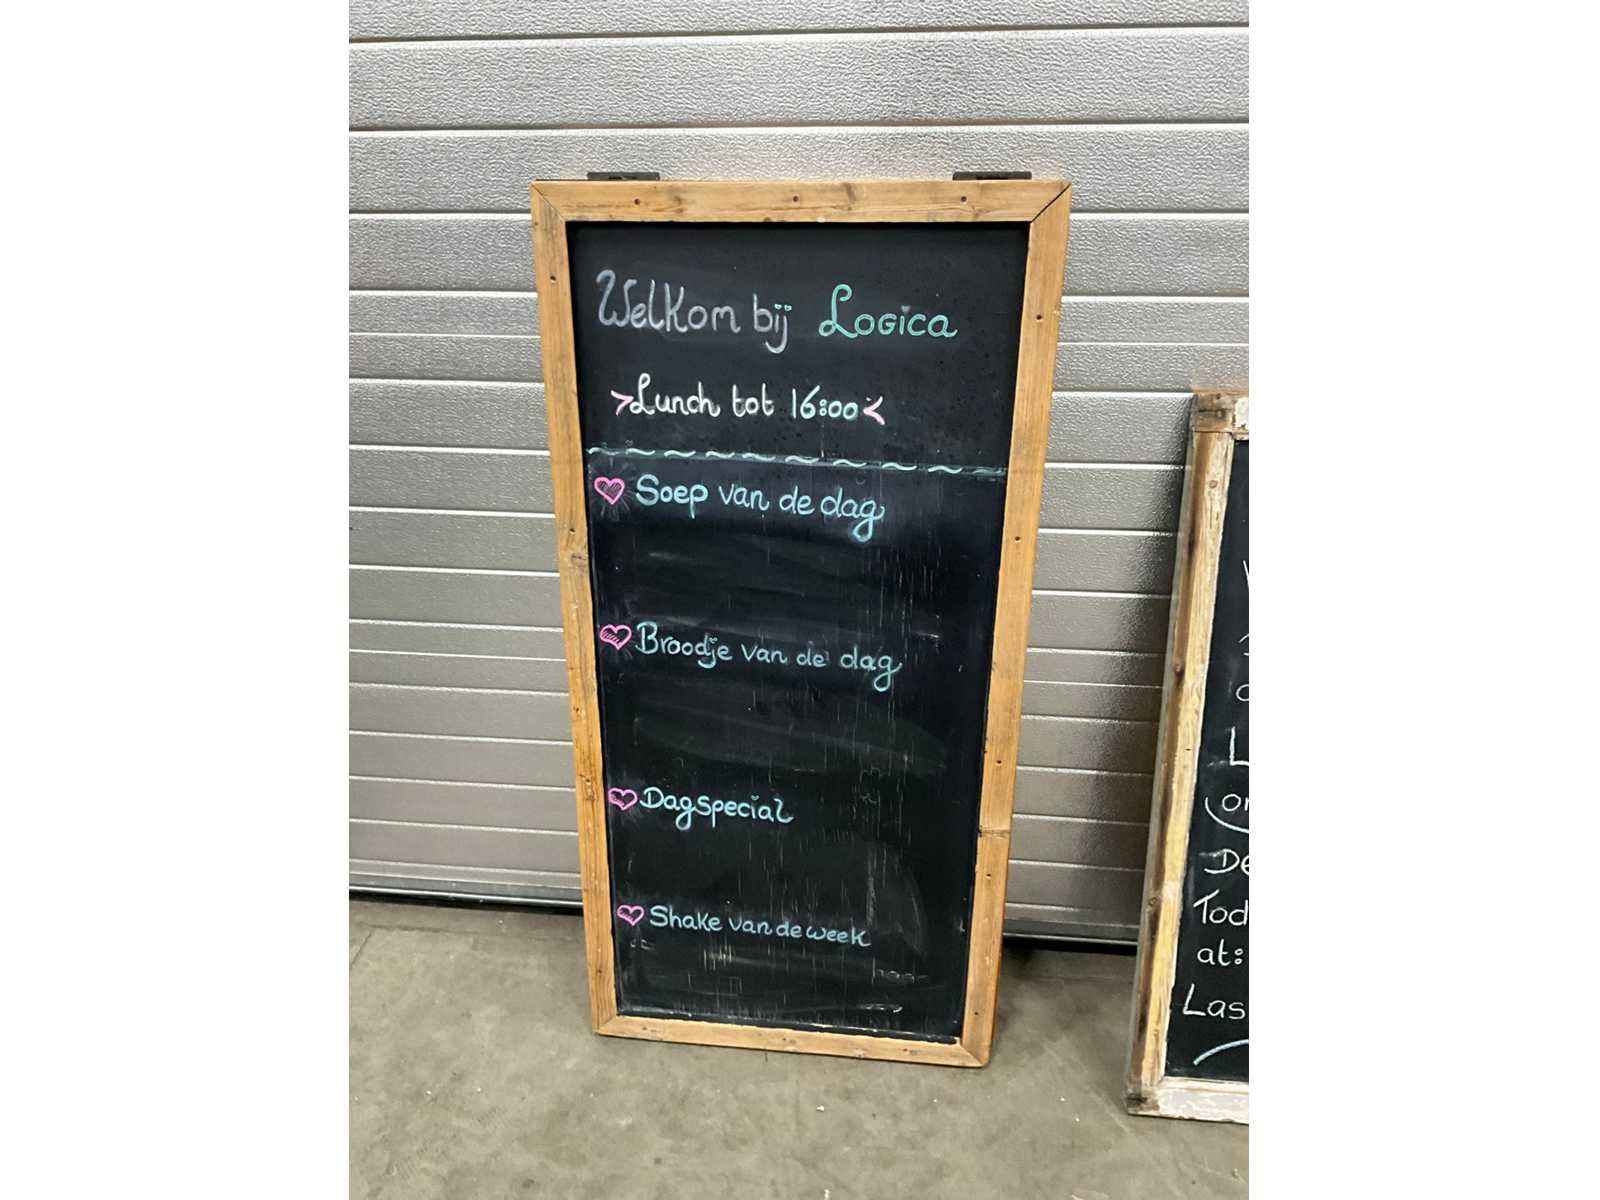 Welkom bij Logica
>Lunch tot 16:00<
Soep van de dag
Broodje van de dag
Dagspecial
Shake van de week
L
or
De
Tod
at:
Las